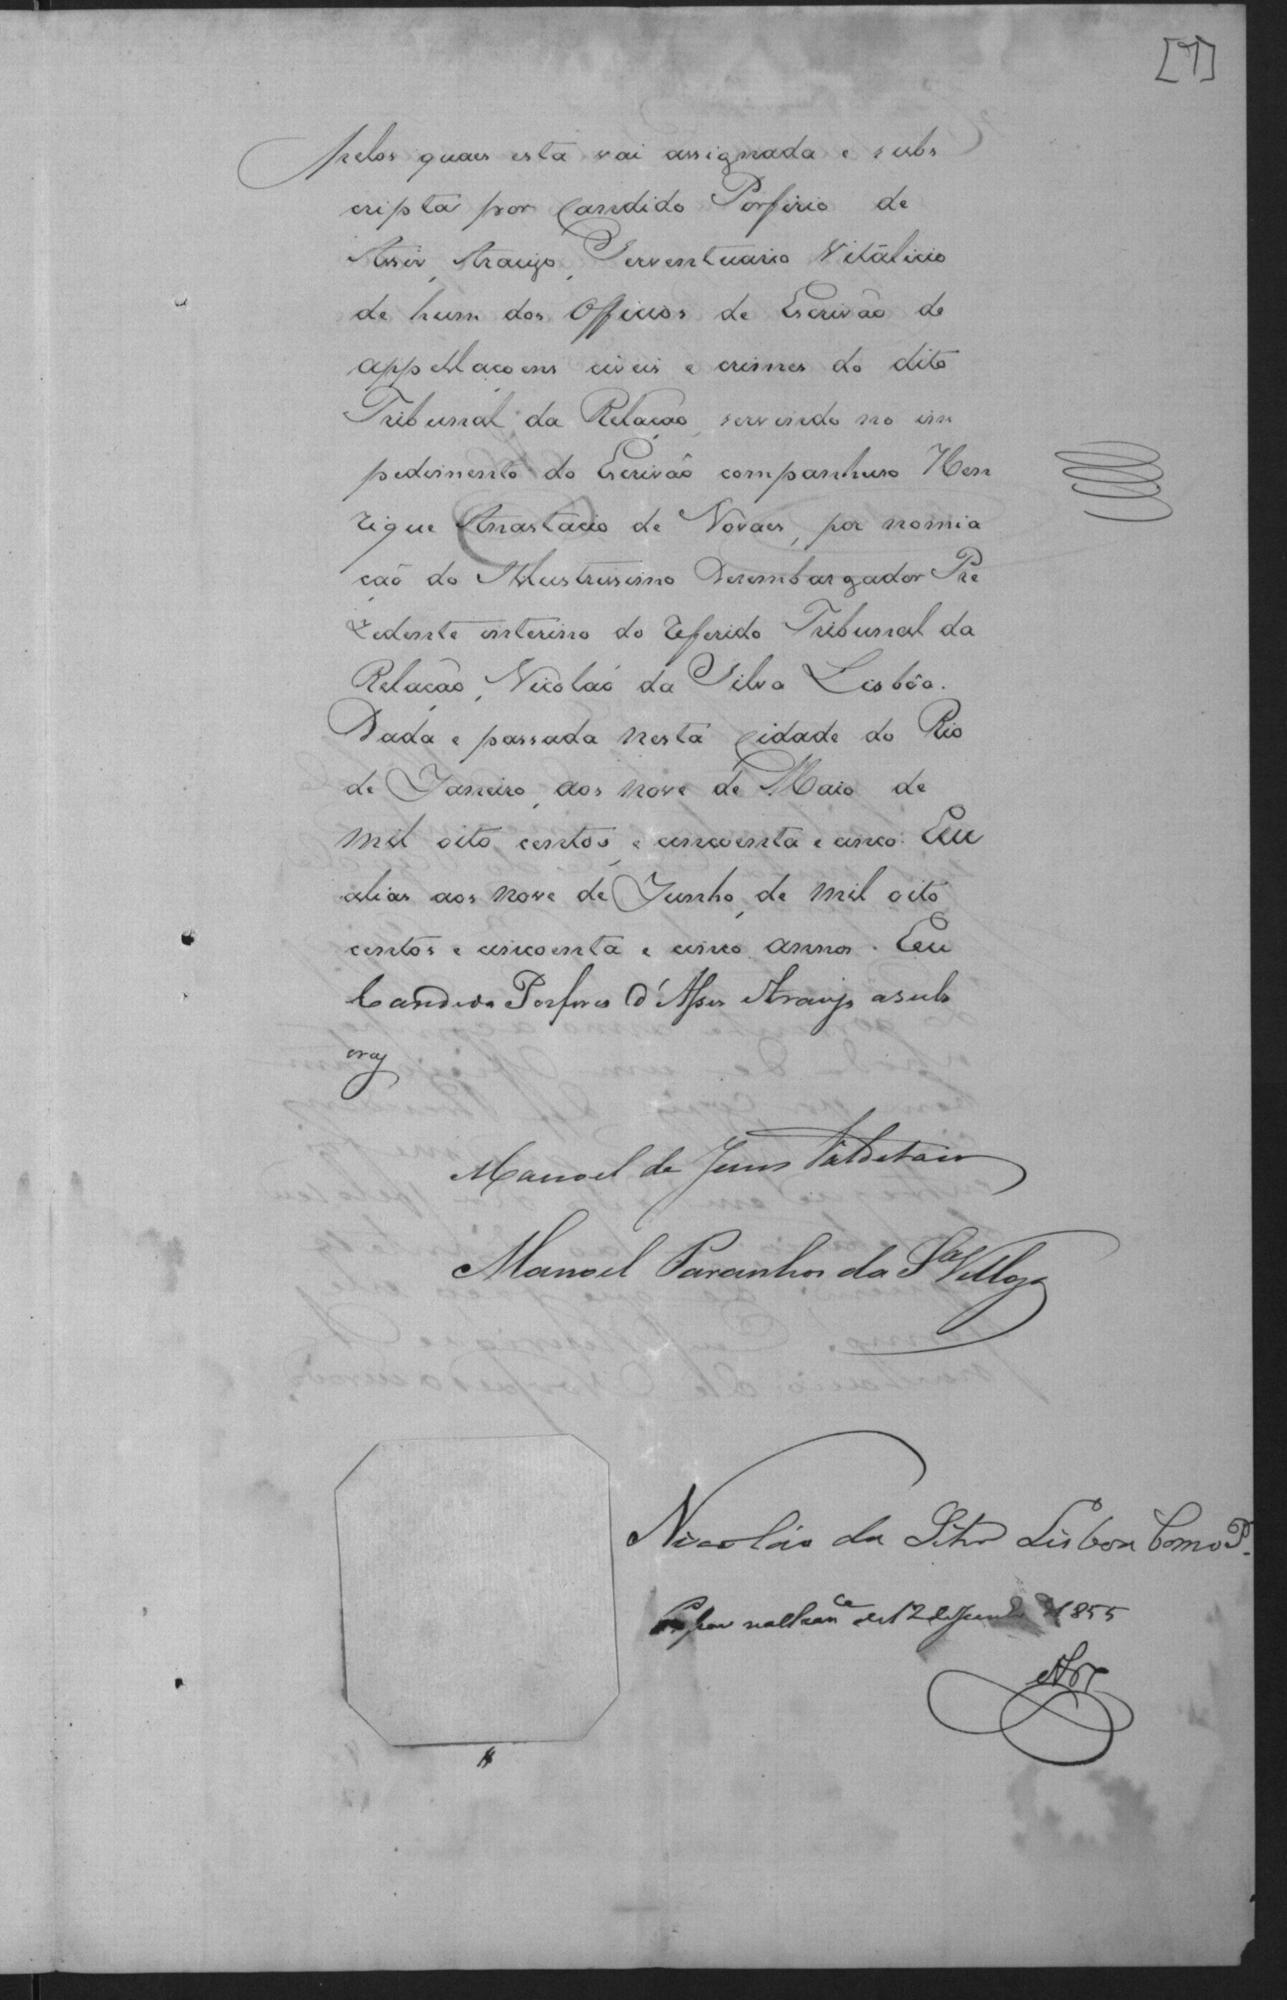 [7]
pelos quaes esta vai assignada e subs
cripta por Candido Porfirio de
Assis Araujo, Serventuario Vitalicio
de hum dos Officios de Escrivão de
appellaçoens civeis e crimes do dito
Tribunal da Relação, servindo no im
pedimento do Escrivão companheiro Hen
rique Anastacio de Novaes, por nomia
ção do Illustrissimo Desembargador Pre
zedente interino do referido Tribunal da
Relação, Nicoláo da Silva Lisbôa.
Dada e passada nesta Cidade do Rio
de Janeiro, aos nove de Maio de
mil oito centos, e cincoenta e cinco. Eu
alias aos nove de Junho, de mil oito
centos e cincoenta e cinco annos. Eu
Candido Porfirio d'Assis Araujo a sub
Manoel de Jesus Valdetaro
Manoel Paranhos da Sª Vellozo
Nicoláo da Silva Lisboa Como P.
de 12 de Junho de 1855